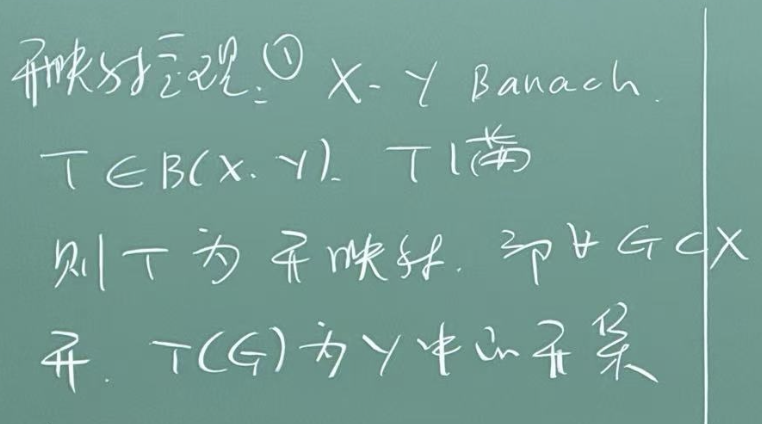 开映射定理:① X、Y Banach.
T∈B(X、Y). T 满
则 T 为 开映射. 即 ∀ G⊂X
开. T(G) 为 Y 中的 开集